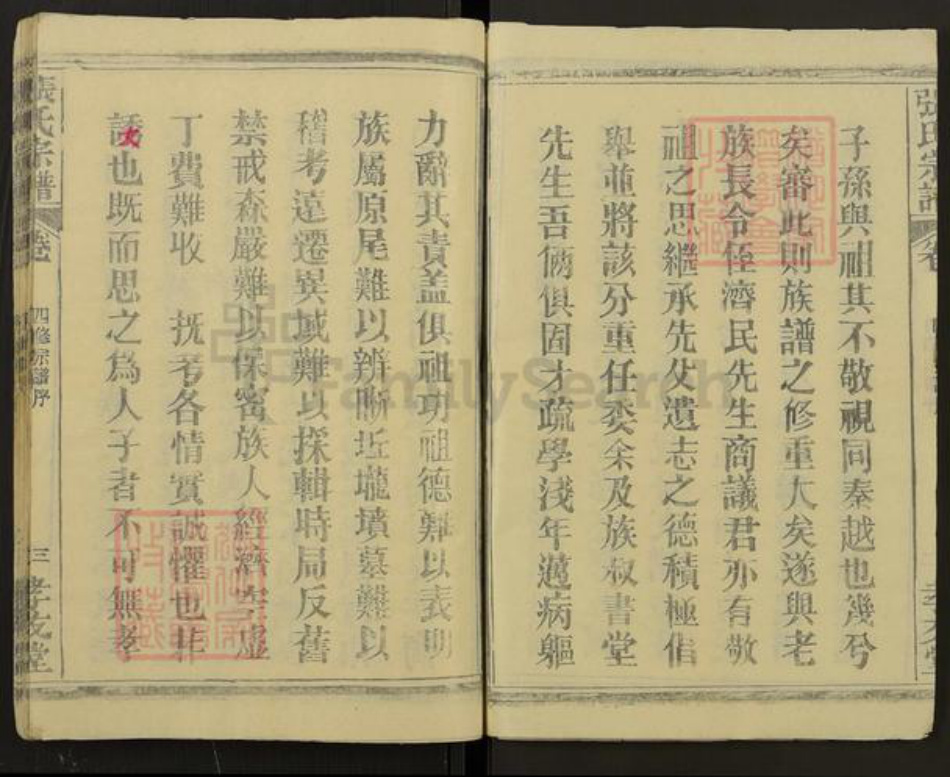 子孫與祖其不敬視同秦越也幾兮
矣審此則族譜之修重大矣遂與老
族長令侄濟民先生商議君亦有敬
祖之思繼承先父遺志之德積極倡
舉並將該分重任委余及族叔書堂
先生吾倆俱固才疏學淺年邁病軀
力辭其責盖俱祖功祖德難以表明
族屬原尾難以辨晰坵壠墳墓難以
稽考遠遷異域難以採輯時局反舊
禁戒森嚴難以保密族人經濟空虛
丁費難收 抚考各情實誠懼也非
諉也既而思之為人子者不可無孝
張氏宗譜
卷
四修宗譜序
三
孝友堂
FamilySearch